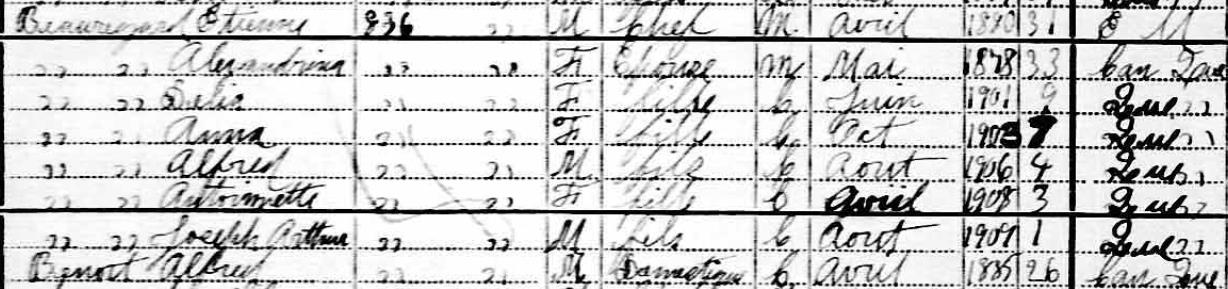 Beauregard Etienne 836 " M Chef M Avril 1880 31 E M
" " Alexandrina " " F Epouse M Mai 1878 33 Can
" " Delia " " F fille C Juin 1901 9
" " Anna " " F fille C Oct 1903 7
" " Alfred " " M fils C Aout 1906 4
" " Antoinette " " F fille C Avril 1908 3
" " Joseph Arthur " " M fils C Aout 1909 1
Benoit Alfred " " M Domestique C Avril 1885 26 Can